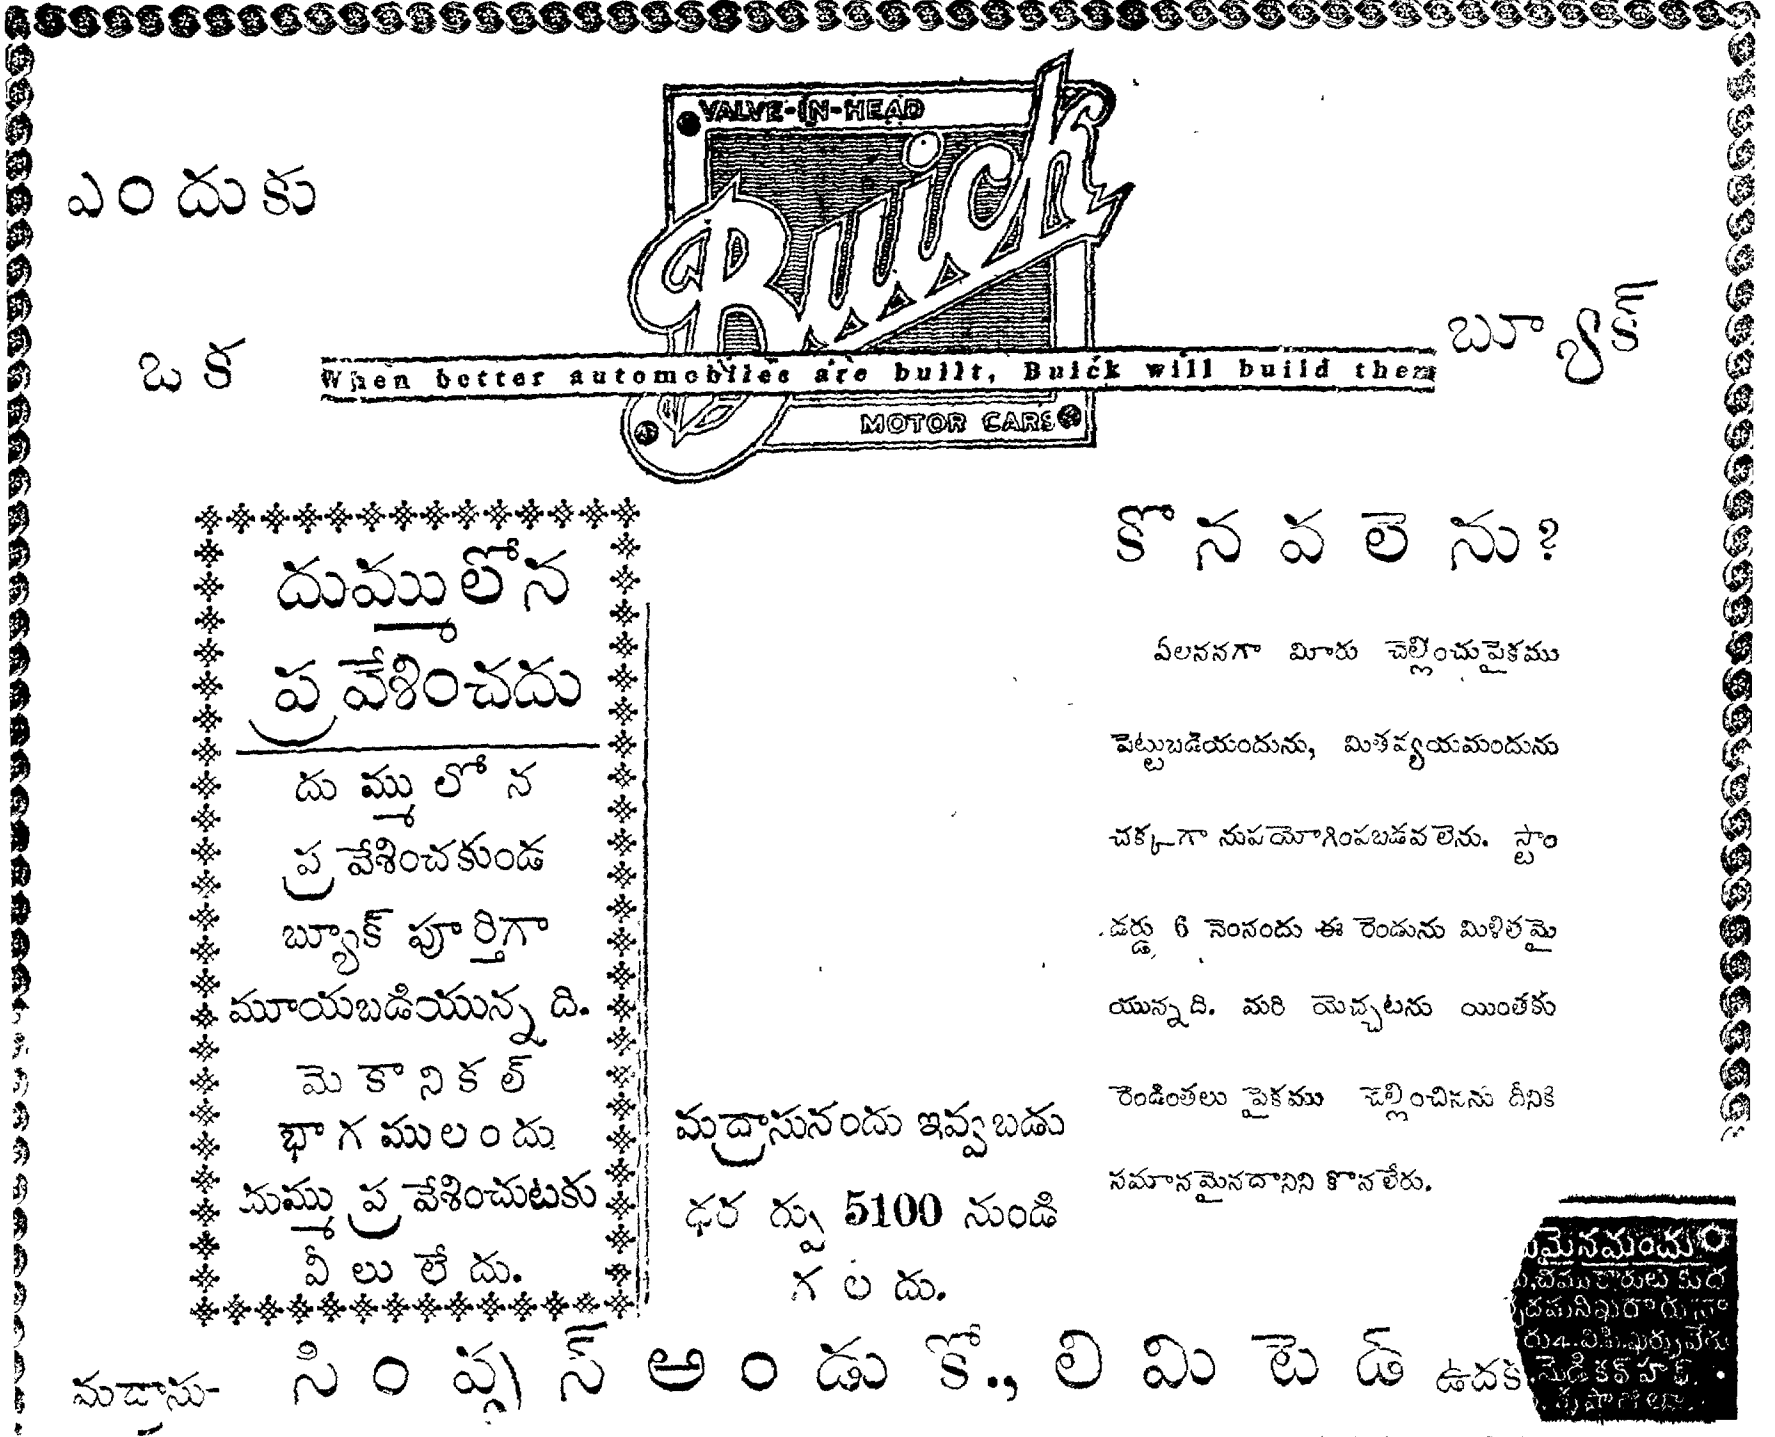 ఎందుకు
VALVE-IN-HEAD
Buick
ఒక
When better automobiles are built, Buick will build them
బ్యూక్
MOTOR CARS
కొనవలెను?
దుమ్ములోన
ప్రవేశించదు
దుమ్ములోన
ప్రవేశించకుండ
బ్యూక్ పూర్తిగా
మూయబడియున్నది.
మెకానికల్
భాగములందు
దుమ్ము ప్రవేశించుటకు
వీలులేదు.
మద్రాసునందు ఇవ్వబడు
ధర 5100 నుండి
గలదు.
ఏలననగా మీరు చెల్లించుపైకము
పెట్టుబడియందును, మితవ్యయమందును
చక్కగా నుపయోగింపబడవలెను. స్టాం
డర్డు 6 నెంనందు ఈ రెండును మిళితమై
యున్నది. మరి యెచ్చటను యింతకు
రెండింతలు పైకము చెల్లించినను దీనికి
సమానమైనదానిని కొనలేరు.
మద్రాసు- సింప్సన్ అండు కో., లిమిటెడ్ ఉదక